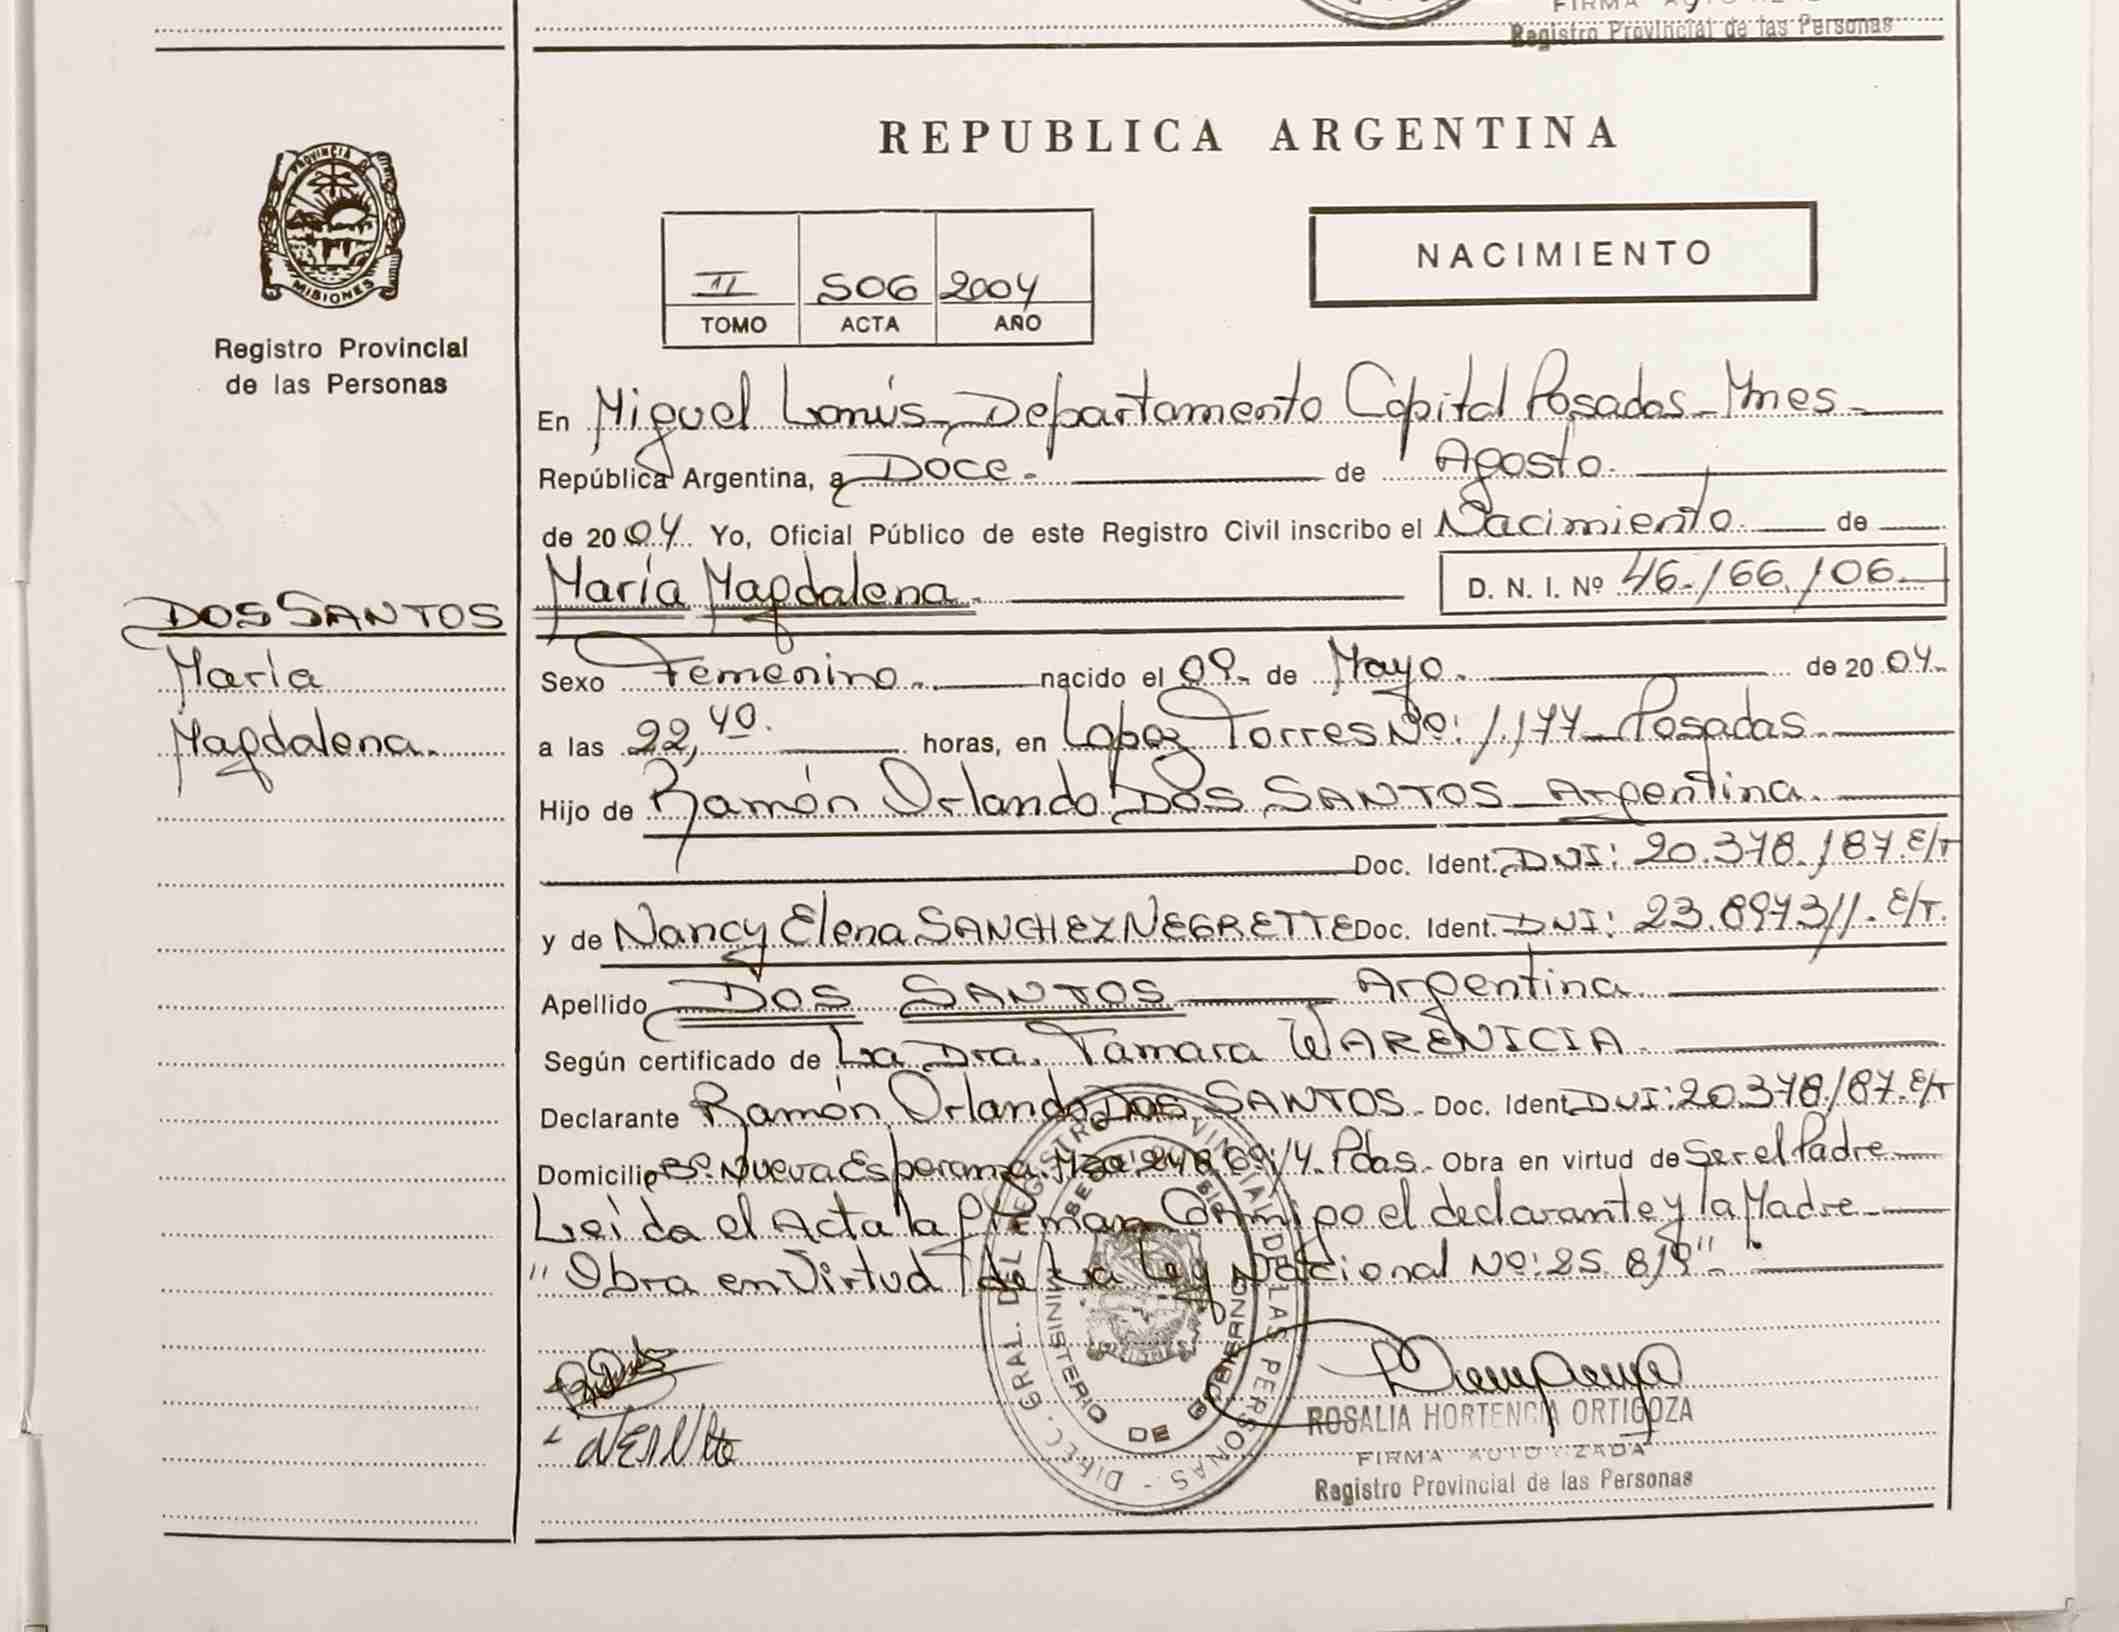 Registro Provincial de las Personas
REPUBLICA ARGENTINA
PROVINCIA DE
MISIONES
Registro Provincial
de las Personas
II 506 2004
TOMO ACTA AÑO
NACIMIENTO
En Miguel Lanús, Departamento Capital Posadas - Mnes -
República Argentina, a Doce. de Agosto.
de 2004 Yo, Oficial Público de este Registro Civil inscribo el Nacimiento de
María Magdalena. D. N. I. Nº 46.166.106.
DOS SANTOS
María
Magdalena.
Sexo Femenino. nacido el 09. de Mayo. de 2004.
a las 22,40. horas, en Lopez Torres Nº: 1.177 - Posadas
Hijo de Ramón Orlando DOS SANTOS - Argentina.
Doc. Ident. DNI: 20.378.187.E/T
y de Nancy Elena SANCHEZ NEGRETTE Doc. Ident. DNI: 23.897.311. E/T.
Apellido DOS SANTOS Argentina
Según certificado de La Dra. Tamara WARENICIA
Declarante Ramón Orlando DOS SANTOS - Doc. Ident. DNI: 20.378.187. E/T
Domicilio Bº. Nueva Esperanza. Mza Pdas. Obra en virtud de Ser el Padre
Leida el Acta la firman Conmigo el declarante y la Madre
"Obra en Virtud de La Ley Nacional Nº: 25.819".
DIREC. GRAL. DEL REGISTRO PROVINCIAL DE LAS PERSONAS
MINISTERIO DE GOBIERNO
ROSALIA HORTENCIA ORTIGOZA
FIRMA AUTORIZADA
Registro Provincial de las Personas